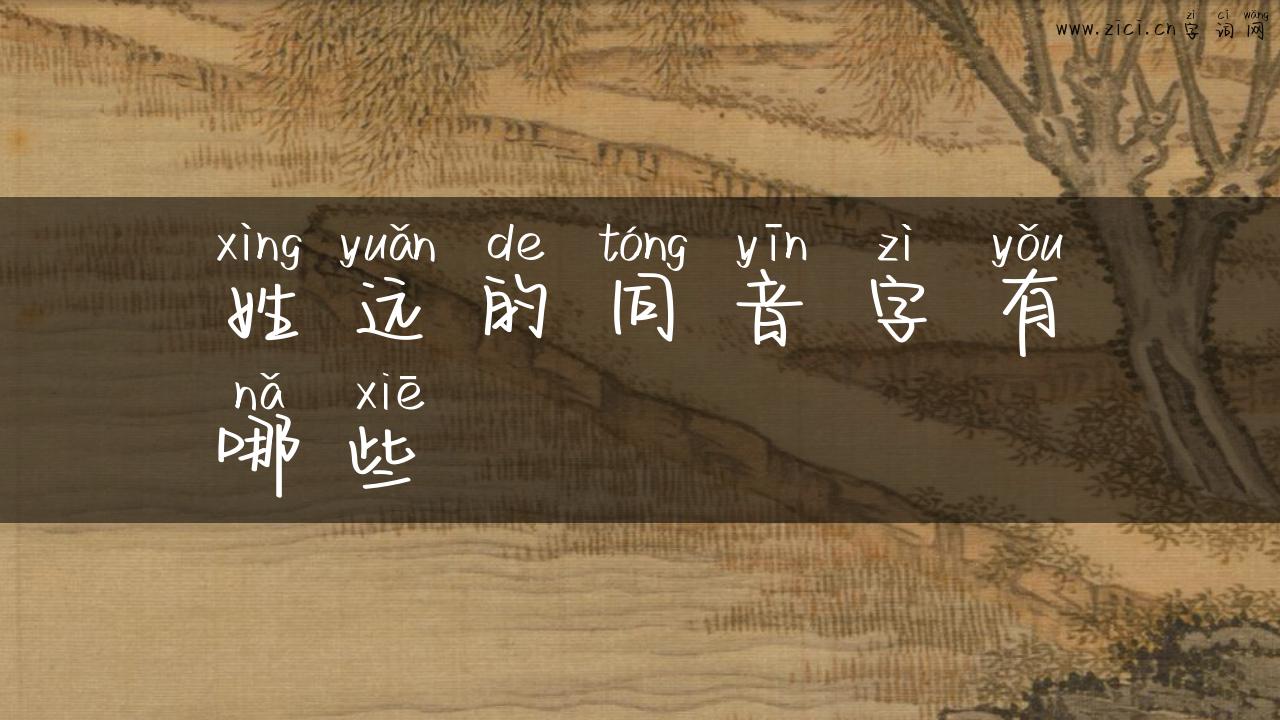 zì cí wǎng
www.zici.cn字词网
xìng yuǎn de tóng yīn zì yǒu
姓远的同音字有
nǎ xiē
哪些